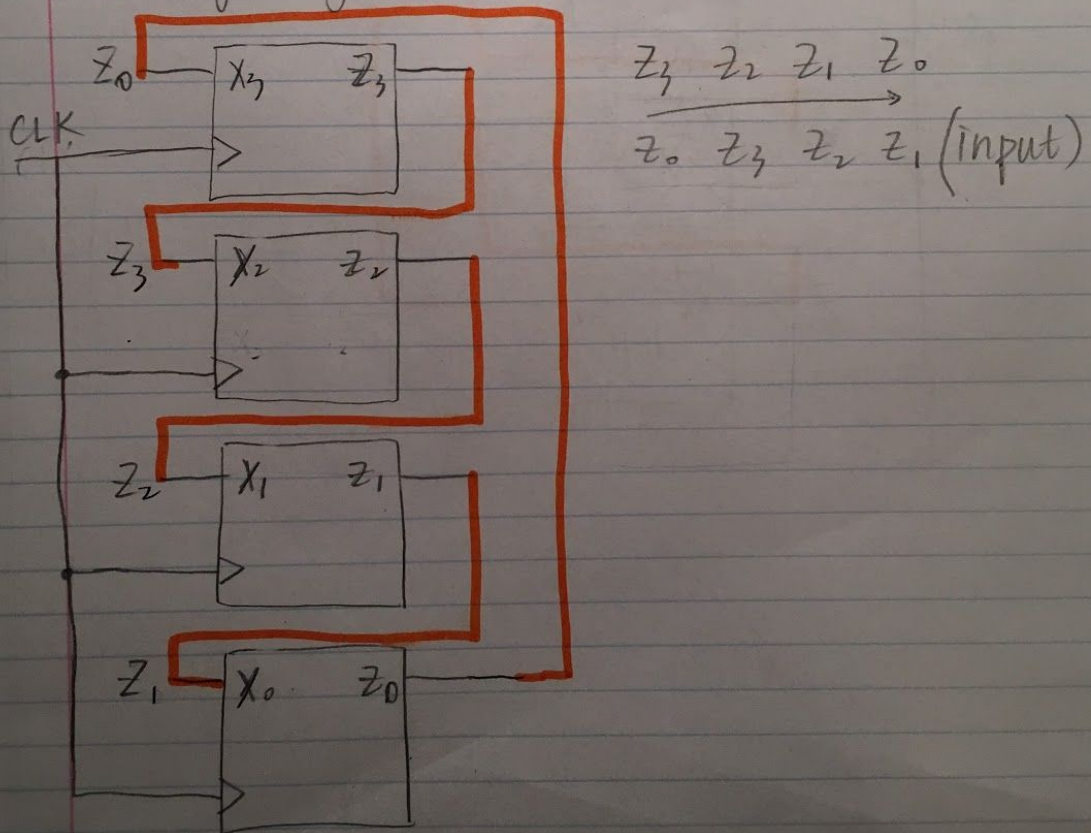 Z₀ X₃ Z₃
CLK
Z₃ X₂ Z₂
Z₂ X₁ Z₁
Z₁ X₀ Z₀
Z₃ Z₂ Z₁ Z₀
Z₀ Z₃ Z₂ Z₁ (input)